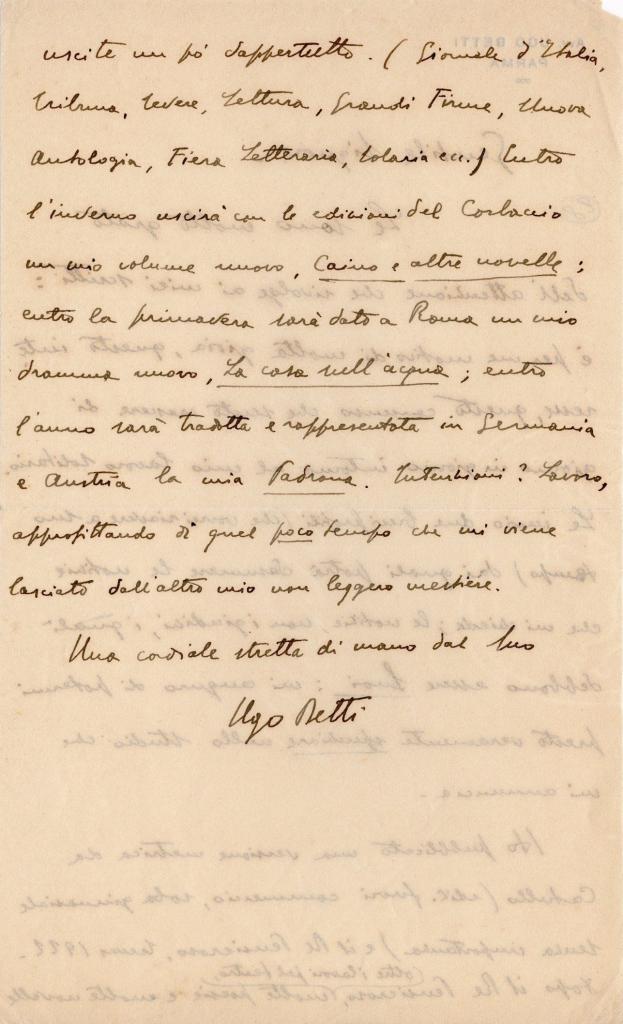 uscite un pò dappertutto. (Giornale d'Italia,
Tribuna, Tevere, Lettura, Grandi Firme, Nuova
Antologia, Fiera Letteraria, Solaria ecc.) Entro
l'inverno uscirà con le edizioni del Corbaccio
un mio volume nuovo, Caino e altre novelle;
entro la primavera sarà dato a Roma un mio
dramma nuovo, La casa sull'acqua; entro
l'anno sarà tradotta e rappresentata in Germania
e Austria la mia Padrona. Intenzioni? Lavoro,
approfittando di quel poco tempo che mi viene
lasciato dall'altro mio non leggero mestiere.
Una cordiale stretta di mano dal Suo
Ugo Betti